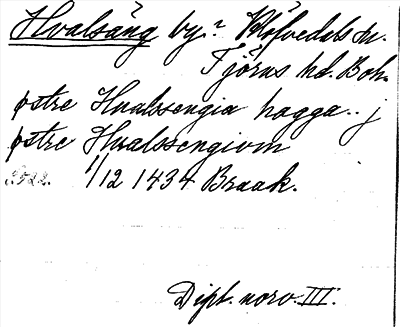 Hvalsäng by? Klöfvedals sn.
Tjörns hd. Boh.
østre Hualssengia hagga.. j
østre Hualssengiom
1/12 1434 Braak.
Dipl. norv. III.